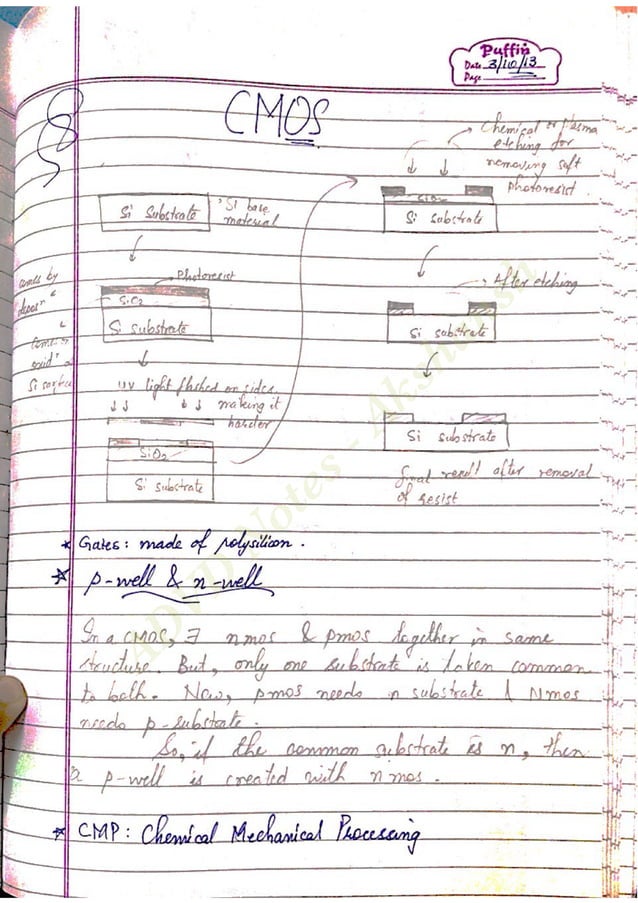 Puffin
Date 3/10/13
Page
CMOS
Si Substrate
Si base
material
Photoresist
SiO2
Si substrate
UV light flashed on sides
making it
harder
SiO2
Si substrate
Chemical or plasma
etching for
removing soft
photoresist
SiO2
Si substrate
After etching
Si substrate
Si substrate
final result after removal
of resist
* Gates: made of polysilicon.
* p-well & n-well
In a CMOS, ∃ nmos & pmos together in same
structure. But, only one substrate is taken common
to both. Now, pmos needs n substrate & Nmos
needs p-substrate.
So, if the common substrate is n, then
a p-well is created with nmos.
* CMP: Chemical Mechanical Processing
ADVD Notes - Akshansh